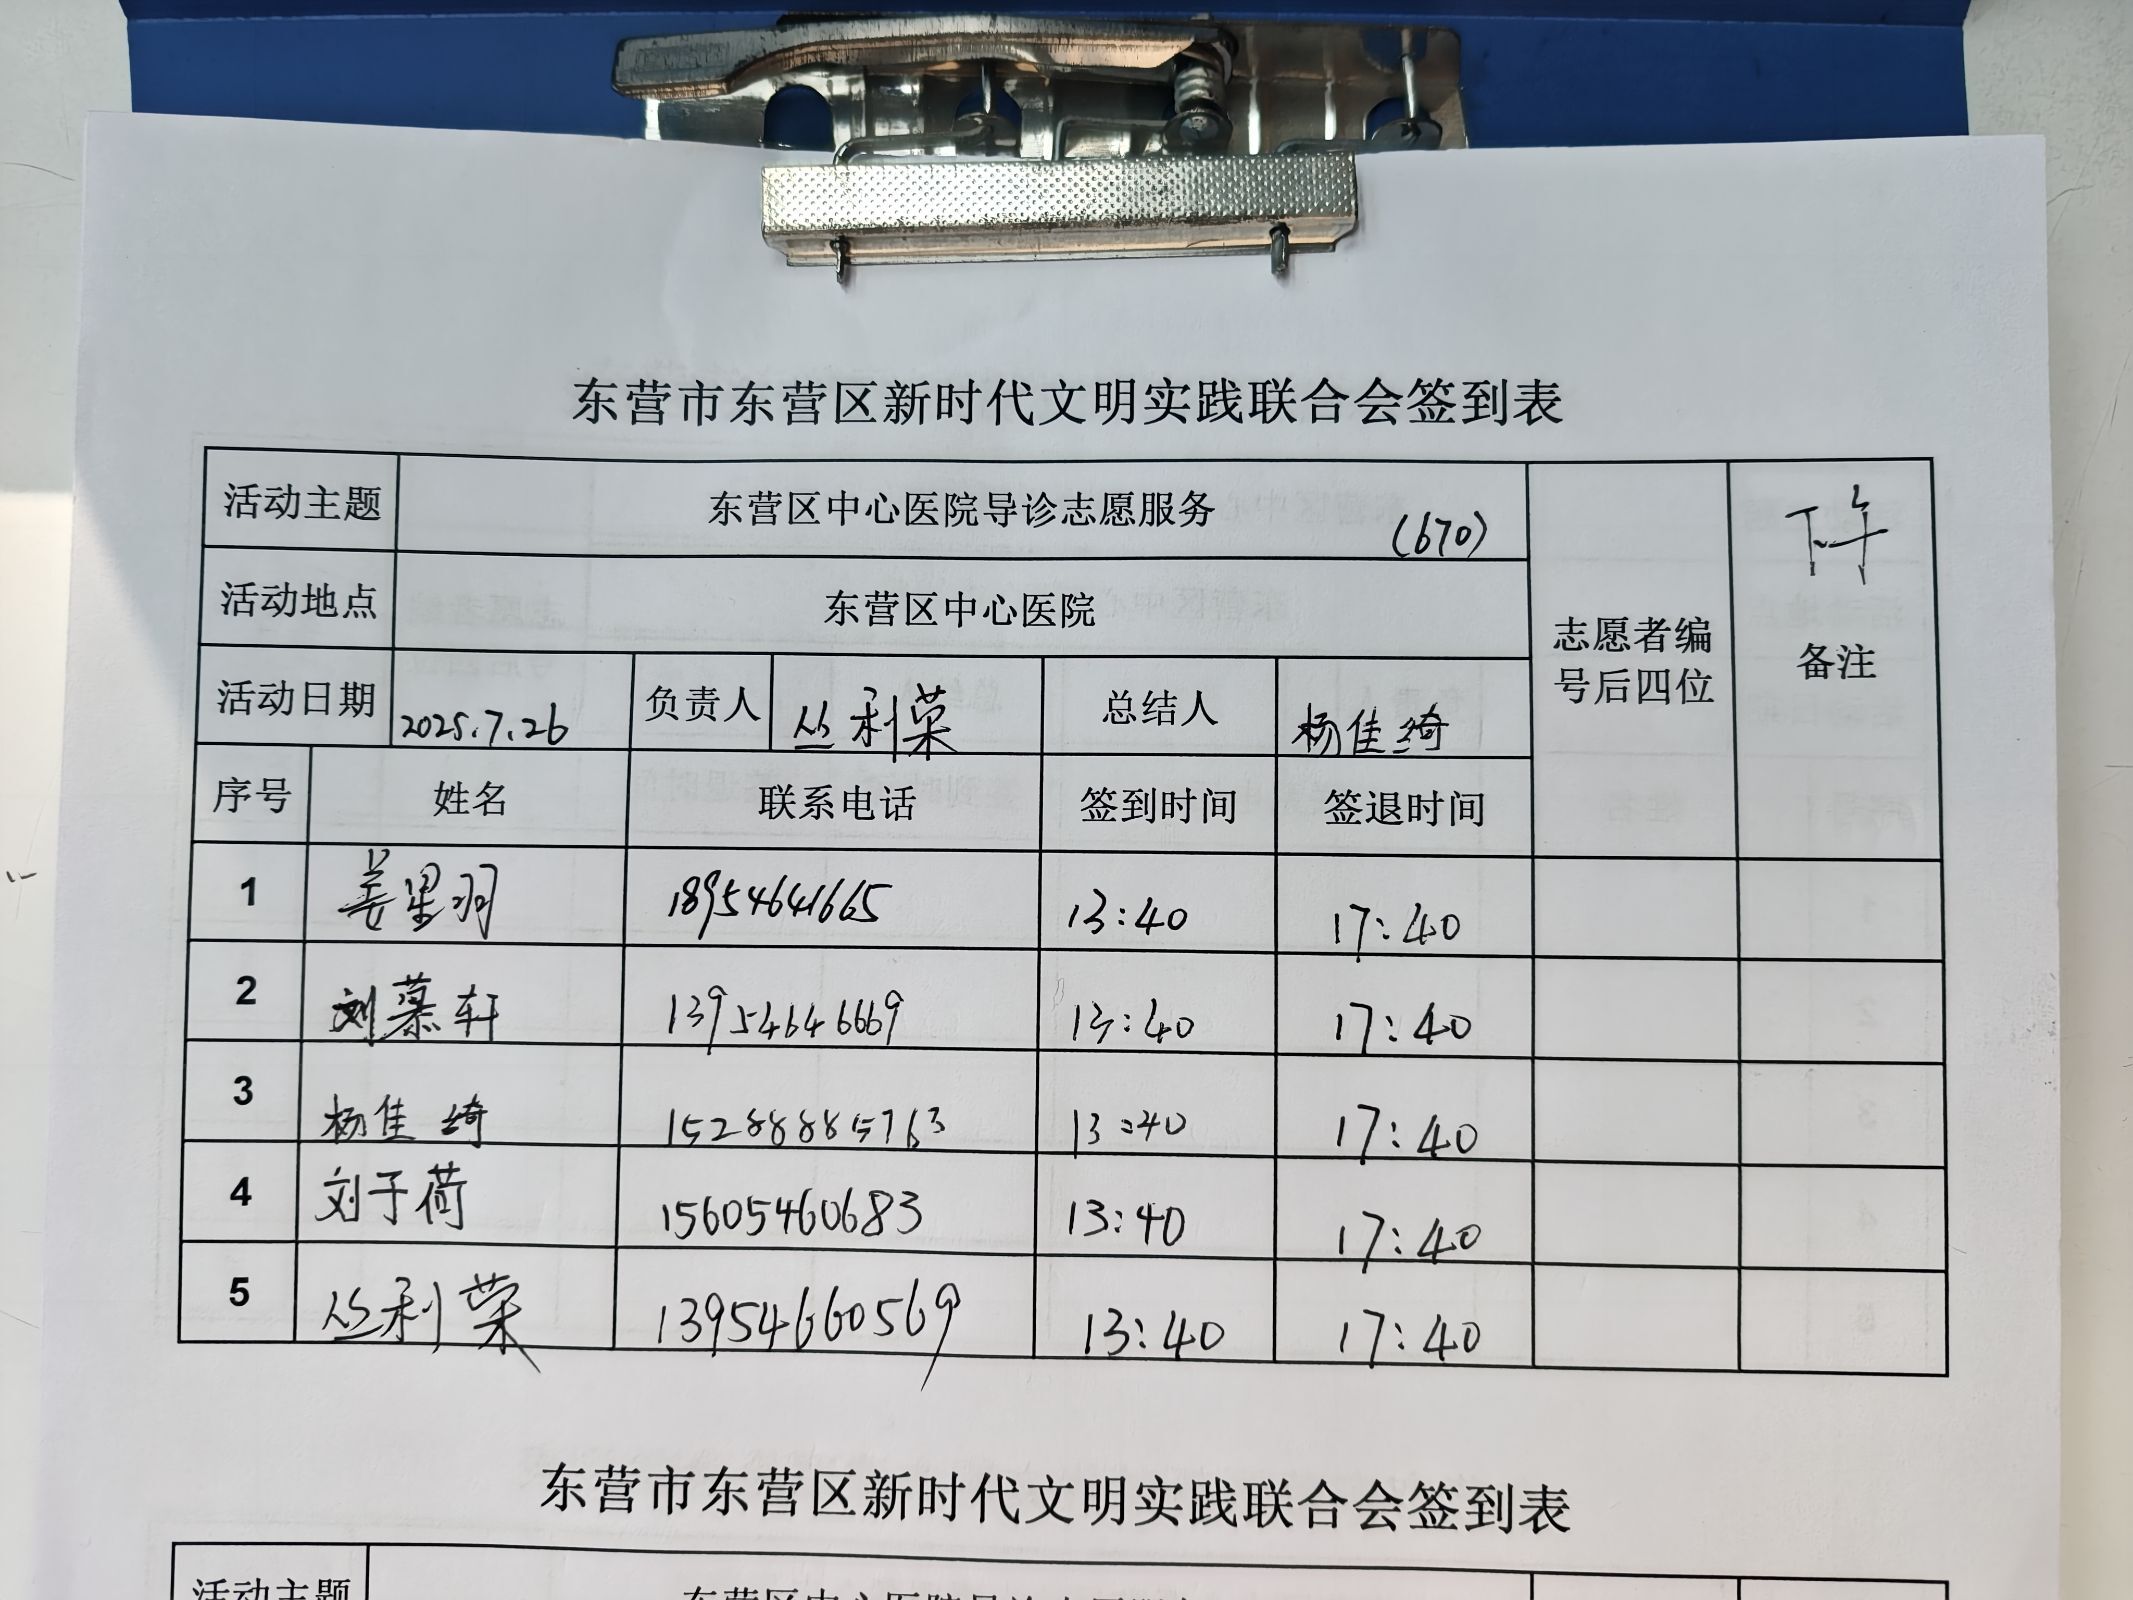 东营市东营区新时代文明实践联合会签到表
活动主题 东营区中心医院导诊志愿服务 (670) 志愿者编号后四位 下午 备注
活动地点 东营区中心医院
活动日期 2025.7.26 负责人 丛利荣 总结人 杨佳绮
序号 姓名 联系电话 签到时间 签退时间
1 姜星羽 18954641665 13:40 17:40
2 刘慕轩 13954646669 13:40 17:40
3 杨佳绮 15288885763 13:40 17:40
4 刘于荷 15605460683 13:40 17:40
5 丛利荣 13954660569 13:40 17:40
东营市东营区新时代文明实践联合会签到表
活动主题 东营区中心医院导诊志愿服务